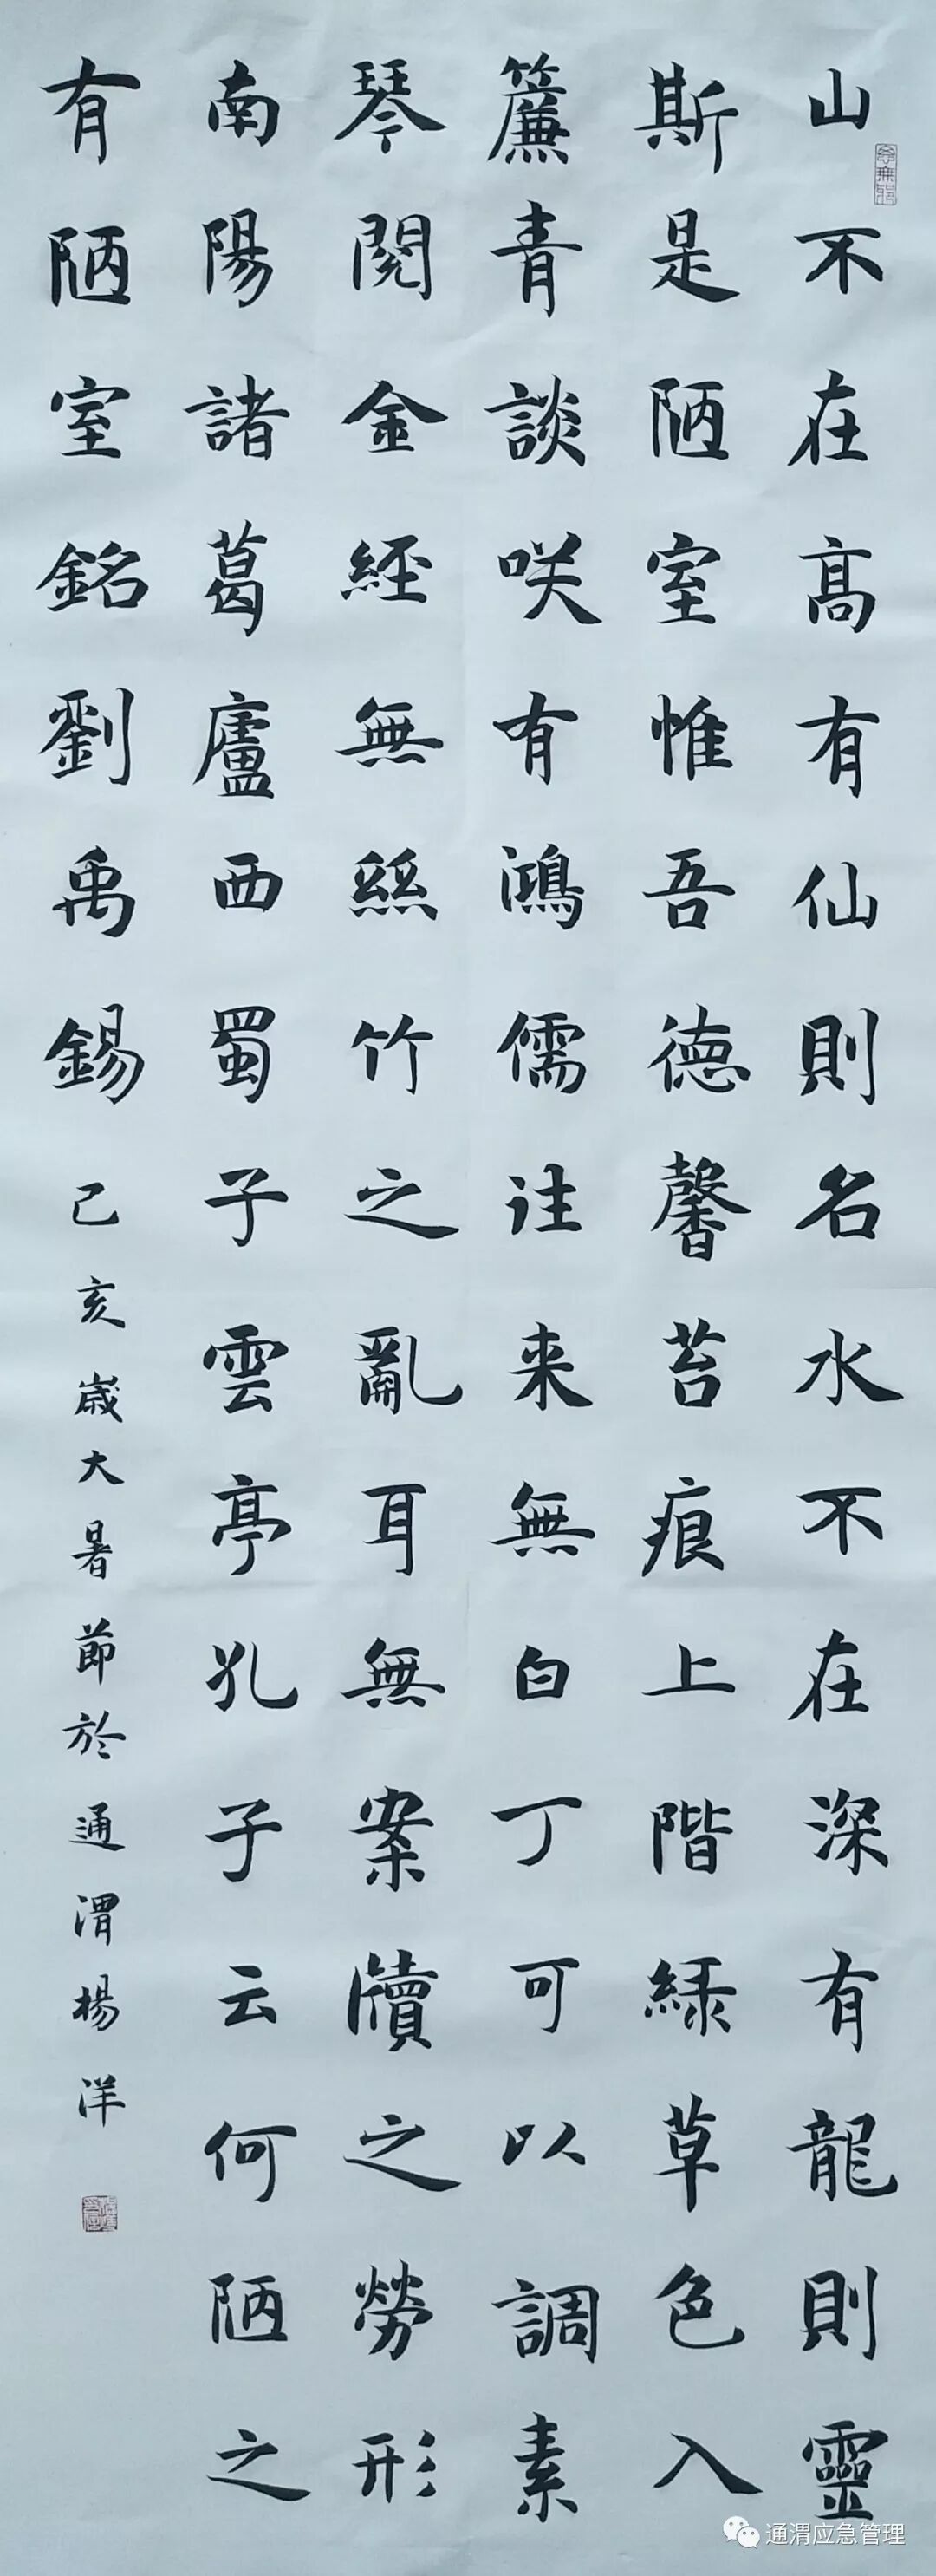 山不在高有仙則名水不在深有龍則靈
斯是陋室惟吾德馨苔痕上階緑草色入
簾青談咲有鴻儒往来無白丁可以調素
琴閱金經無絲竹之亂耳無案牘之勞形
南陽諸葛廬西蜀子雲亭孔子云何陋之
有陋室銘劉禹錫己亥歲大暑節於通渭楊洋
通渭应急管理